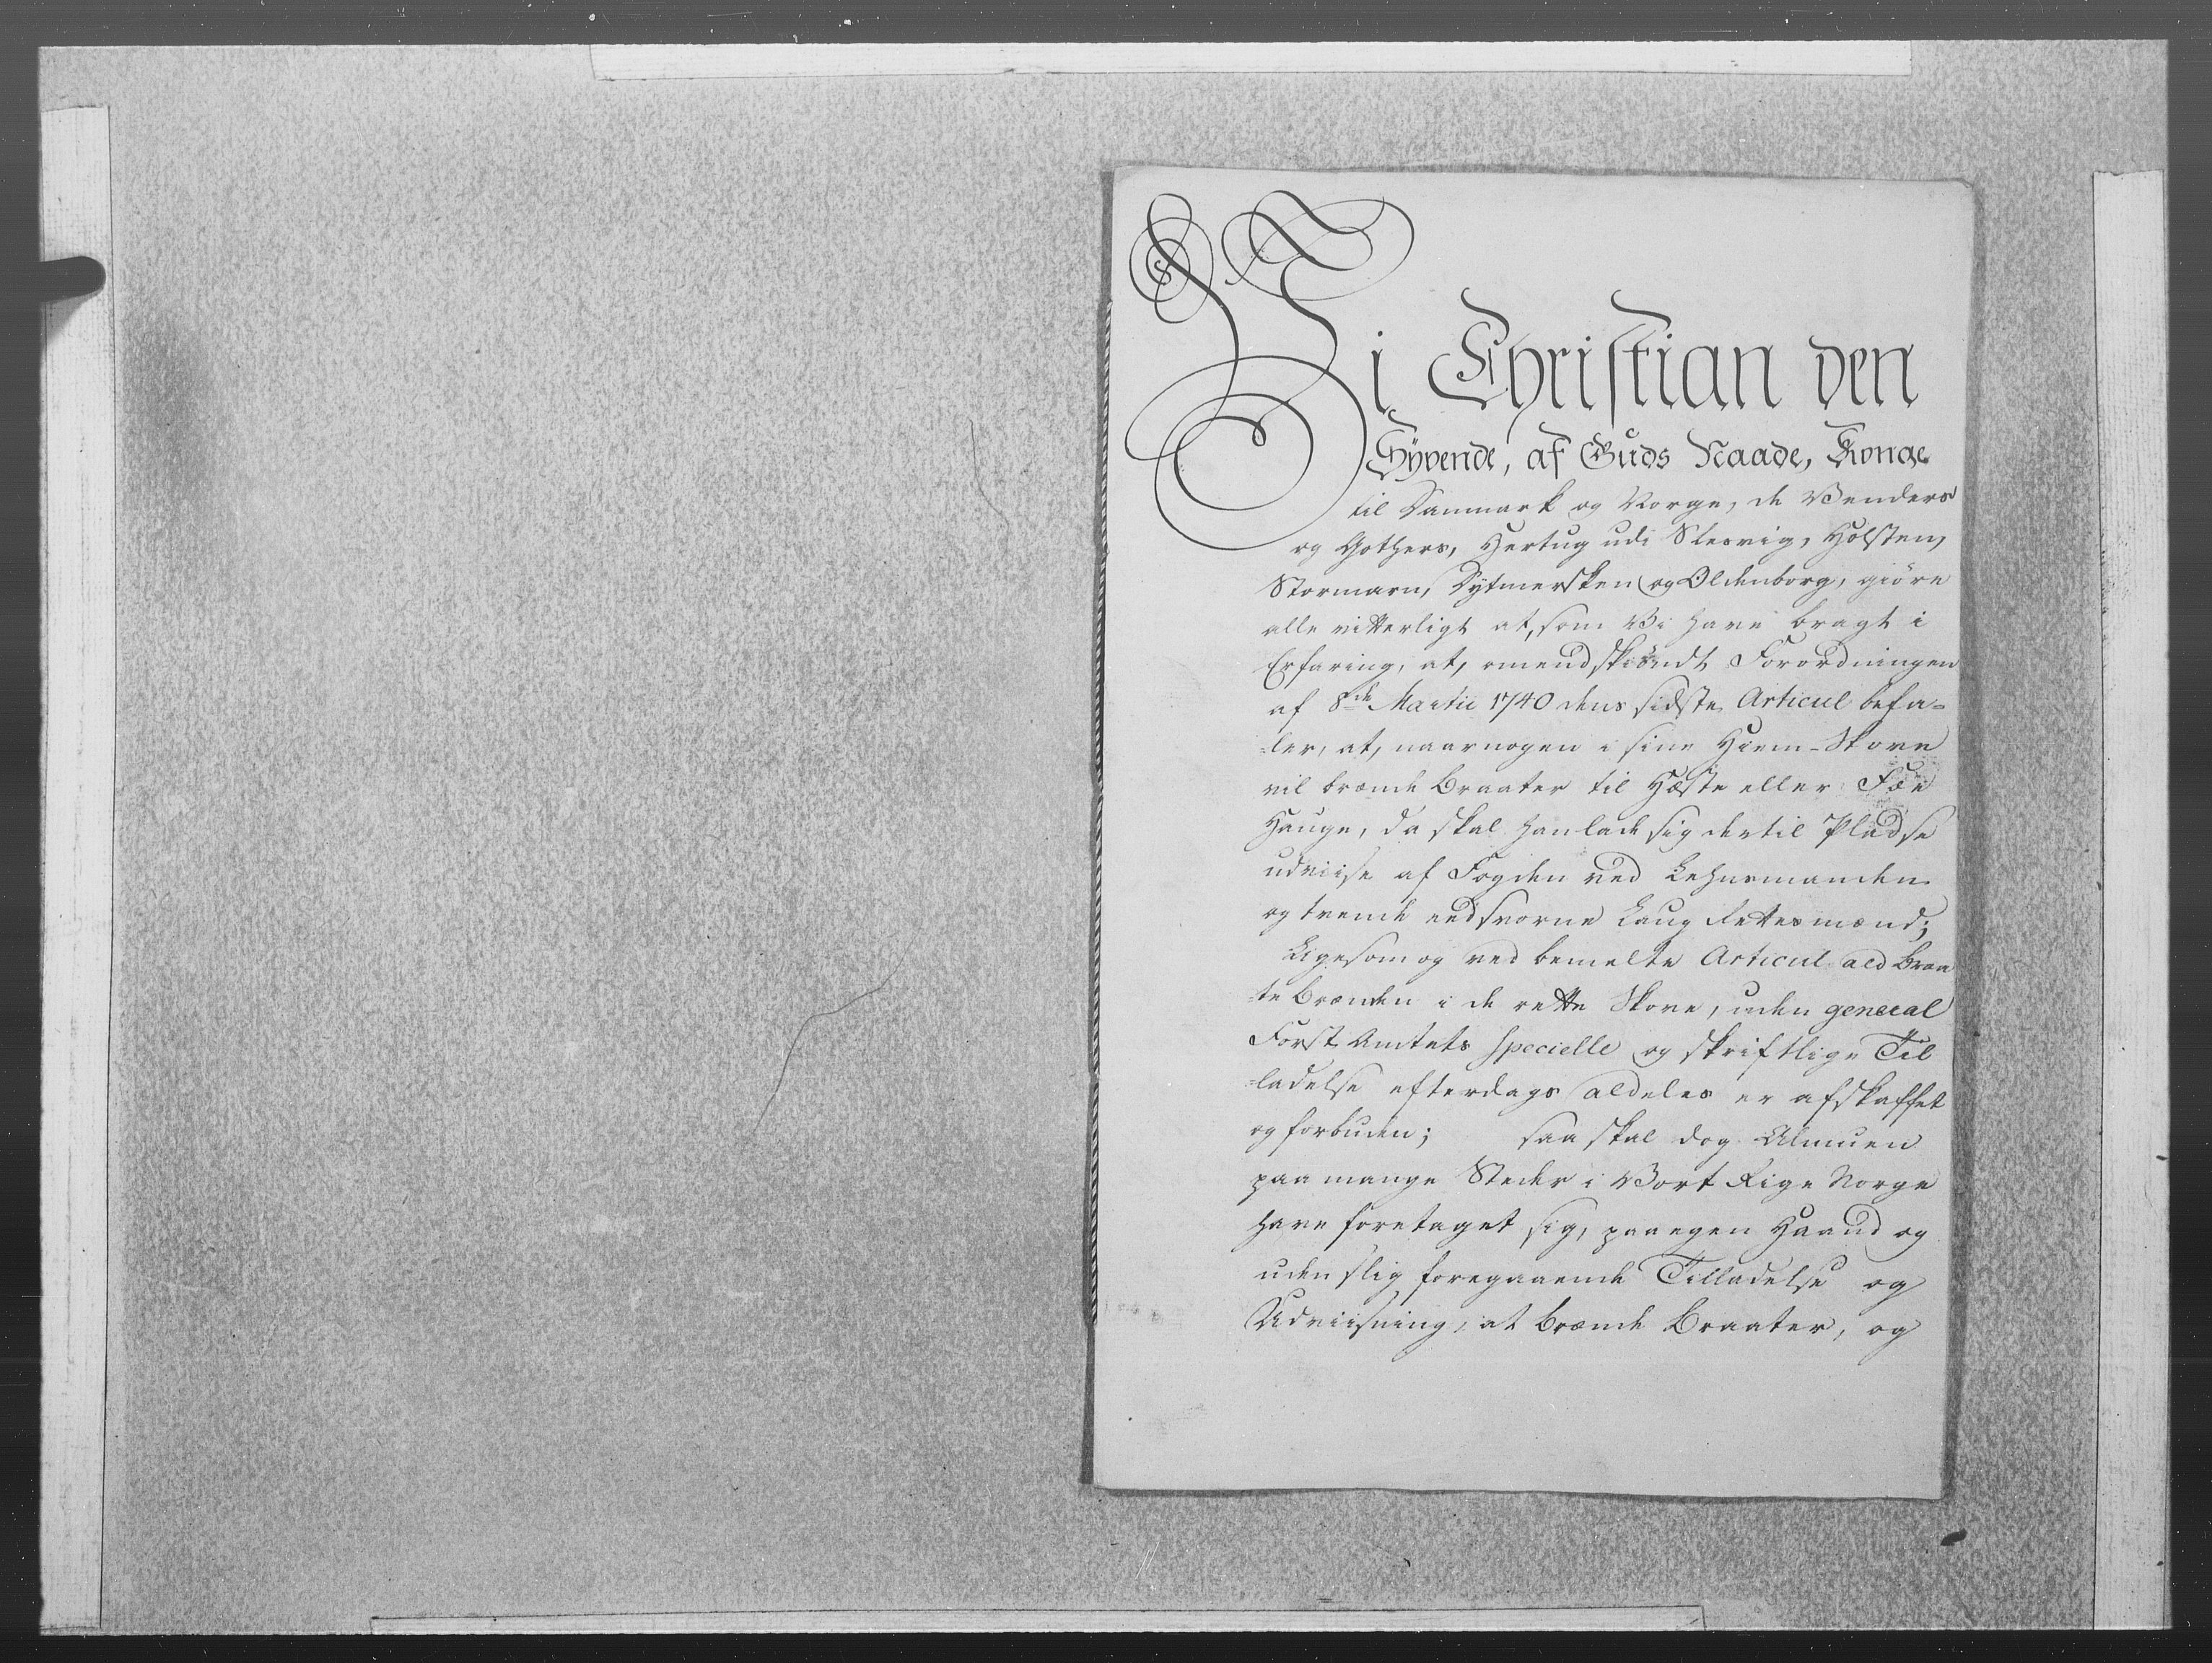 Vi Christian den
Syvende, af Guds Naade, Konge
til Danmark og Norge, de Venders
og Gothers, Hertug udi Slesvig, Holsten,
Stormarn, Dytmersken og Oldenborg, giöre
alle vitterligt at, som Vi have bragt i
Erfaring, at, omendskiöndt Forordningen
af 8de Martii 1740 dens sidste Articul befa=
=ler, at, naar nogen i sine Hiem-Skove
vil brænde Braater til Hæste eller Fæe
Hauge, da skal han lade sig dertil Pladse
udviise af Fogden ved Lehnsmanden
og tvende eedsvorne Laug Rettesmænd;
Ligesom og ved bemelte Articul ald Braa
=te Brænden i de rette Skove, uden general
Forst Amtets specielle og skriftlige Til
=ladelse efterdags aldeles er afskaffet
og forbuden; saa skal dog Almuen
paa mange Steder i Vort Rige Norge
have foretaget sig, paa egen Haand og
uden slig foregaaende Tilladelse og
Udviisning, at brænde Braater, og